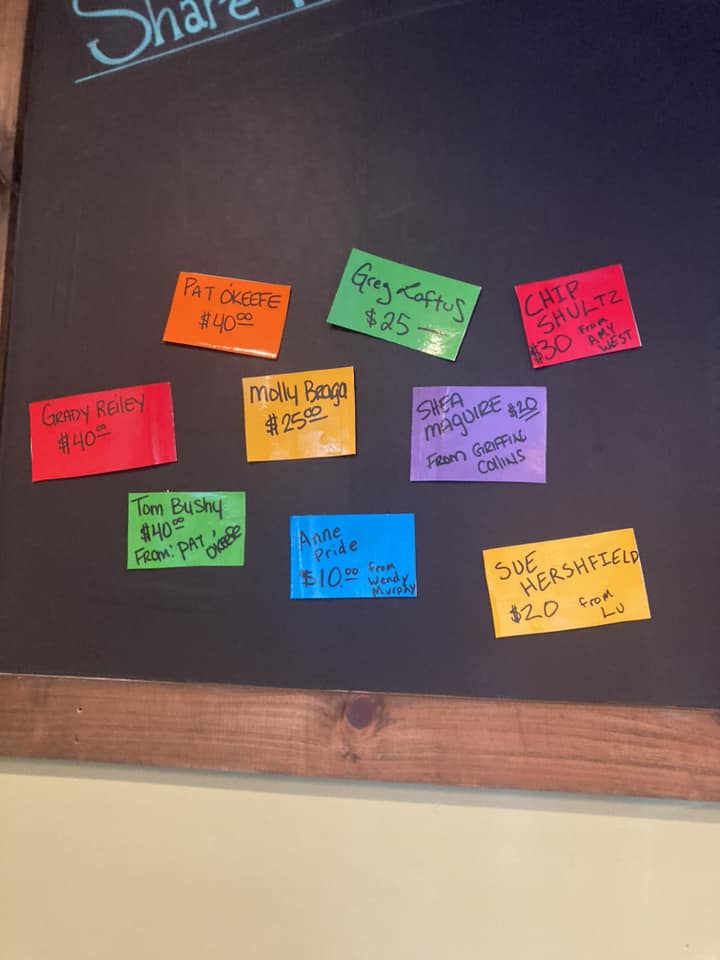 Share
PAT O'KEEFE
$40.00
Greg Loftus
$25 —
CHIP
SHULTZ
$30 From
AMY
WEST
GRADY REILEY
$40.00
Molly Braga
$25.00
SHEA
MAGUIRE $20
FROM GRIFFIN
COLLINS
Tom Bushy
$40.00
FROM: PAT O'KEEFE
Anne
Pride
$10.00 From
Wendy
Murphy
SUE
HERSHFIELD
$20 From
LU